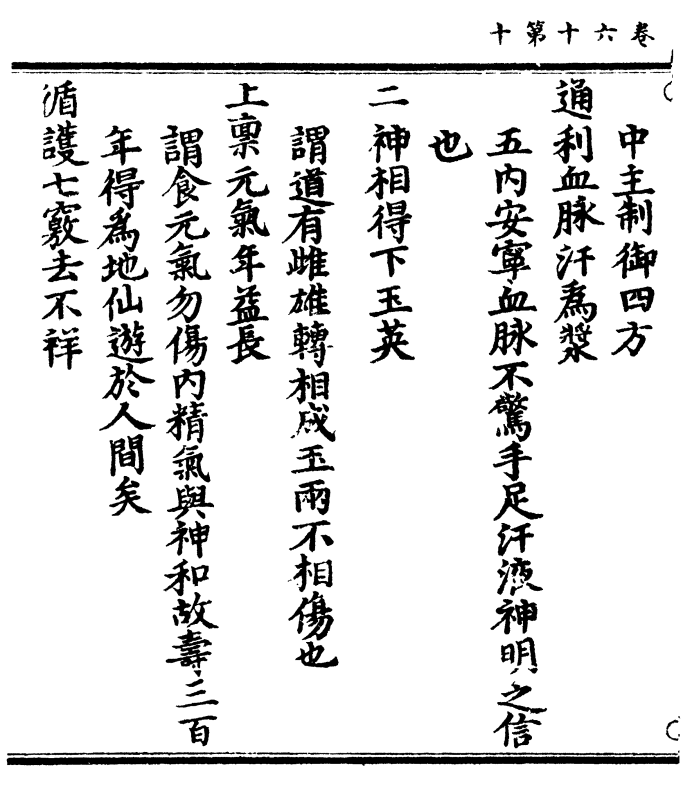 卷六十第十
中主制御四方
通利血脉汗爲漿
五内安寧血脉不驚手足汗液神明之信
也
二神相得下玉英
謂道有雌雄轉相成玉兩不相傷也
上禀元氣年益長
謂食元氣勿傷内精氣與神和故壽三百
年得爲地仙遊於人間矣
循護七竅去不祥